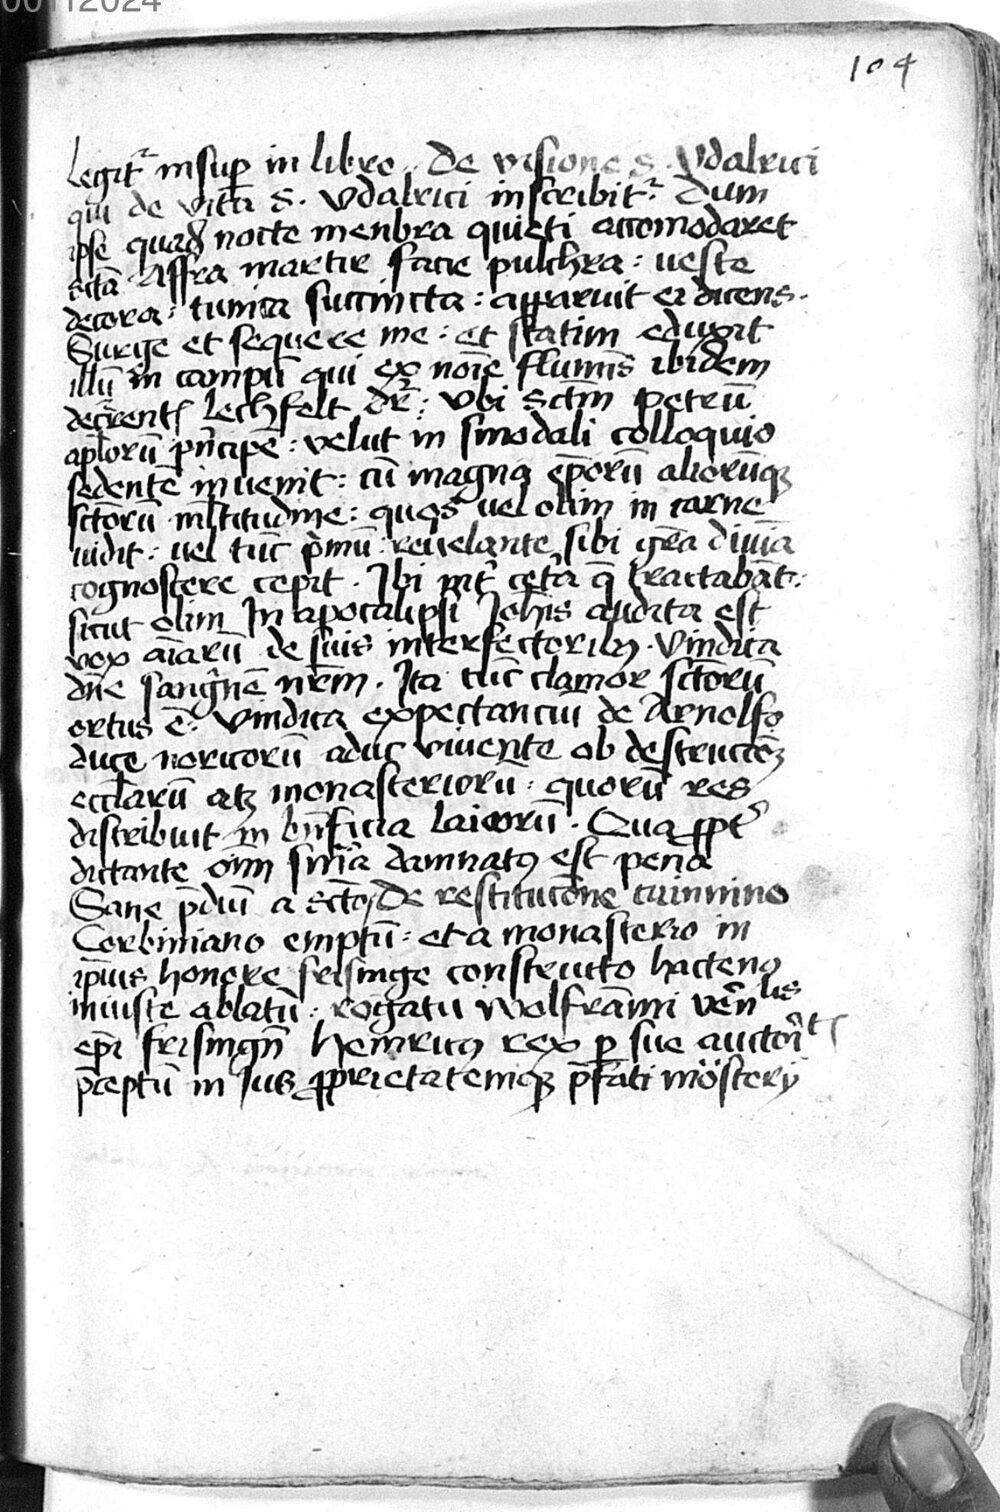 00112024
104
Legit᷑ insup̱ in libro . De visione s. Vdalrici
qui de vita s. Vdalrici inscribit᷑ Dum
ipse quadā nocte menbra quieti accomodaret
sctā Affra martir facie pulchra : ueste
decora : tunica succincta : apparuit ei dicens .
Surge et sequere me : et statim eduxit
illū in campū qui ex noīe flumīs ibidem
Lechfelt dr̄ : Vbi Sctm̄ petrū
aplorū pn̄cipē : velut in sinodali colloquio
sedentē inuenit : cū magna ep̄orū aliorūqꝫ
sctorū multitudine : quos vel olim in carne
vidit : uel tūc p̓mū : reuelante sibi gr̄a diuīa
cognoscere cepit . Ibi int̓ cet̓a q̄ tractabāt :
sicut olim In apocalipsi Joh̄is audita est
vox aīarū de suis interfectoribꝫ . Vindica
dn̄e sangͥnē nr̄m . Ita tūc clamor sctorū
ortus ē : vindicā expectanciū de Arnolfo
duce noricorū aduc viuente ob destructōꝫ
eccl̄arū atꝫ monasteriorū : quorū res
distribuit in bn̄ficia laicorū . Qua ꝓpt̓
dictante oīm snīa damnatꝰ est pena
Sane p̄diū a De restitucōne
Corbiniano emptū : et a monasterio in
ip̄ius honore frisinge constructo hactenꝰ
iniuste ablatū : rogatu Wolframi vēnlis
ep̄i frisingn̄ Heinricꝰ rex ꝑ sue auctorͥt
p̄ceptū in Jus ꝓprietatemqꝫ p̄fati mōstery